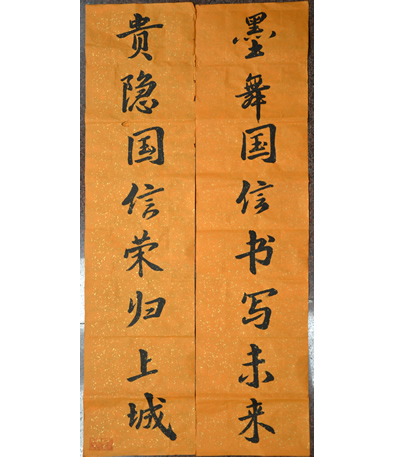 墨舞国信书写未来
贵隐国信荣归上城